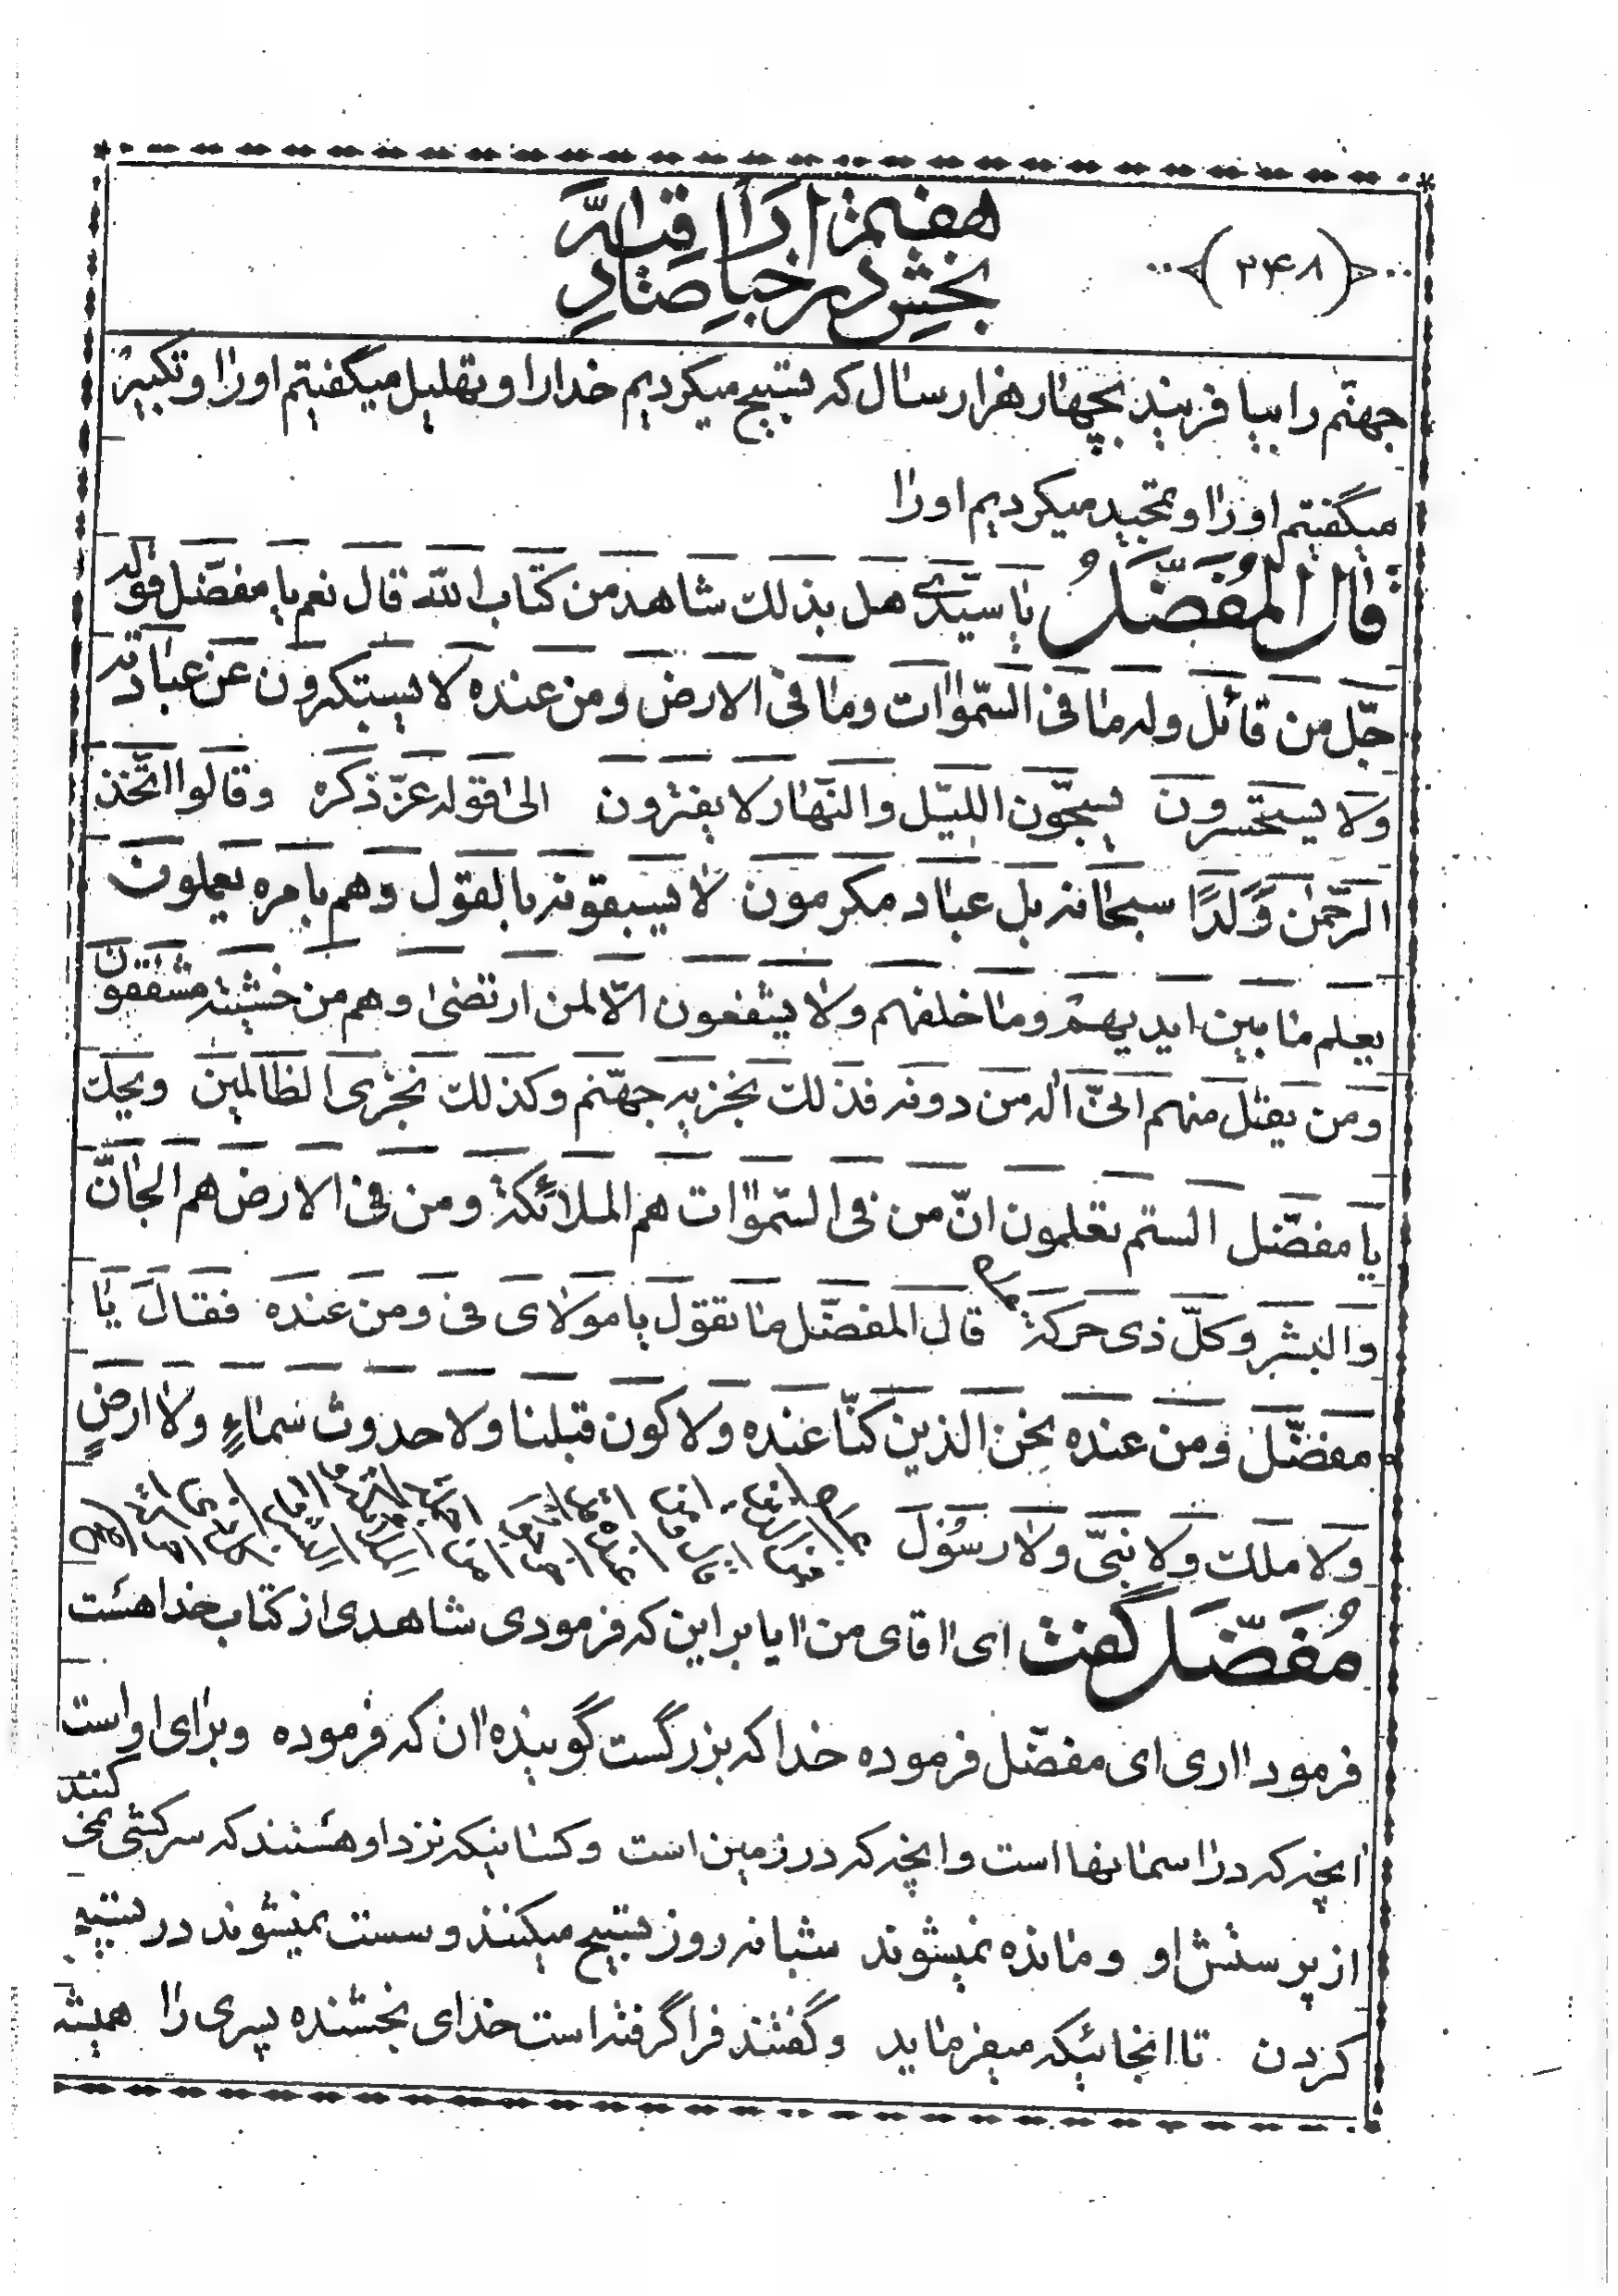 هفتم از دا قب الر
بخش در اخبار صادر
(۲۴۸)
جهنّم را بیافریند بچهار هزار سال که تسبیح میکردیم خدا را و تهلیل میگفتیم او را و تکبیر
میگفتیم او را و تمجید میکردیم او را
قال المُفَضّلُ یا سیّدی هل بذلك شاهد من کتاب الله قال نعم یا مفضّل قوله
جّل من قائل وله ما فی السّموات وما فی الارض ومن عنده لا یستکبرون عن عبادته
ولا یستحسرون یسبّحون اللیّل والنّهار لا یفترون الی قوله عزّ ذکره وقالوا اتّخذ
الرّحمن وَلَدًا سبحانه بل عباد مکرمون لا یسبقونه بالقول وهم بامره یعملون
یعلم ما بین ایدیهم وما خلفهم ولا یشفعون الّا لمن ارتضی وهم من خشیته مشفقون
ومن یقل منهم انّی اله من دونه فذلك نجزیه جهّنم وکذلك نجزی الظالمین ویحك
یا مفضّل الستم تعلمون انّ من فی السّموات هم الملائکة ومن فی الارض هم الجانّ
والبشر وکلّ ذی حرکة قال المفضّل ما تقول یا مولای فی ومن عنده فقال یا
مفضّل ومن عنده نحن الذین کنّا عنده ولا کون قبلنا ولا حدوث سماءٍ ولا ارضٍ
ولا ملك ولا نبیّ ولا رسُول
مُفَضّل گفت ای اقای من ایا بر این که فرمودی شاهدی از کتاب خدا هست
فرمود اری ای مفضّل فرموده خدا که بزرگست گوینده ان که فرموده و برای او است
انچه که در اسمانها است وانچه که در زمین است وکسانیکه نزد او هستند که سرکشی نمی کنند
از پرستش او و مانده نمیشوند شبانه روز تسبیح میکنند و سست نمیشوند در تسبیح
کردن تا انجائیکه میفرماید و گفتند فرا گرفته است خدای بخشنده پسری را همیشه